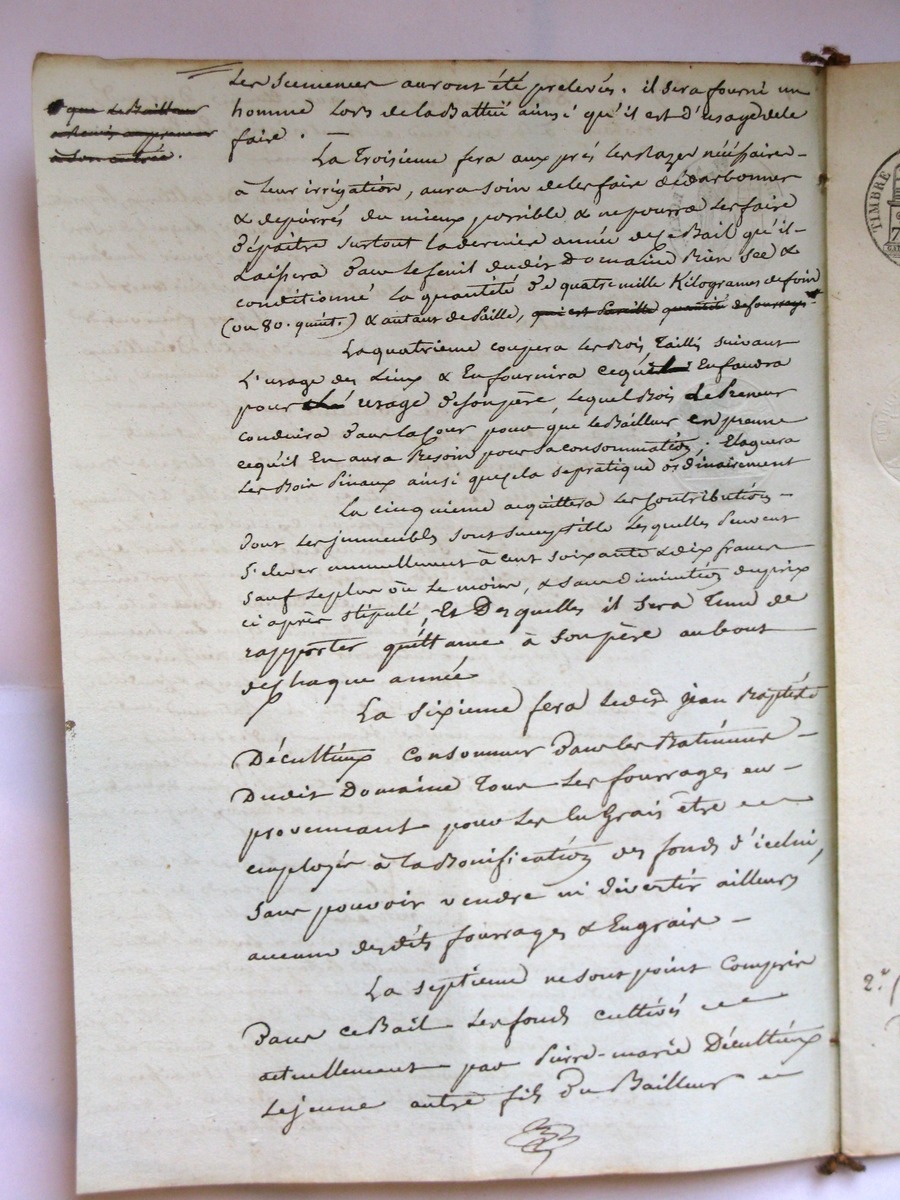 que le Bailleur
a remis au preneur
à son entrée.
Les Semences auront été prelevés. il sera fourni un
homme Lors de la Battue ainsi qu'il est d'usage de le
faire.
La Troisieme fera aux prés les Razes nécéssaires
à leur irrigation, aura soin de les faire dédarbonner
& depierrés du mieux possible & ne pourra les faire
dépaitre surtout la derniere année de ce Bail qu'il
Laissera dans le fenil dudit Domaine Bien sec &
conditionné la quantité de quatre mille Kilogrames de foin
(ou 80. quint.) & autant de Paille, qui est Pareille quantité de fourrage
La quatrieme coupera Les Bois Taillis suivant
L'usage des Lieux & En fournira ce qu'il En faudra
pour usage de son père, Lequel Bois Le Preneur
conduira dans la Cour pour que le Bailleur en prenne
ce qu'il En aura Besoin pour sa consommation; Elaguera
Les Bois Pinaux ainsi que cela se pratique ordinairement
La cinquieme acquittera Les Contributions
dont Les jmmeubles sont susceptible Lesquelles Peuvent
S'elever annuellement à cent soixante & dix francs
sauf Le plus ou Le moins, & sans diminution du prix
ci après stipulé, Et Desquelles il sera Tenu de
rapporter quittance à son père au bout
de chaque année
La sixieme fera Ledit jean Baptiste
Décultieux Consommer dans les Batiments
Dudit Domaine Tous Les fourrages en
provennant pour Les En Grais être
employés à la Bonification des fonds d'icelui,
Sans pouvoir vendre ni divertir ailleurs
aucune desdits fourrages & Engrais
La septieme ne sont point Compris
Dans ce Bail Les fonds cultivés
actuellement par Pierre-marie Décultieux
Le jeune autre fils du Bailleur
TIMBRE
2°